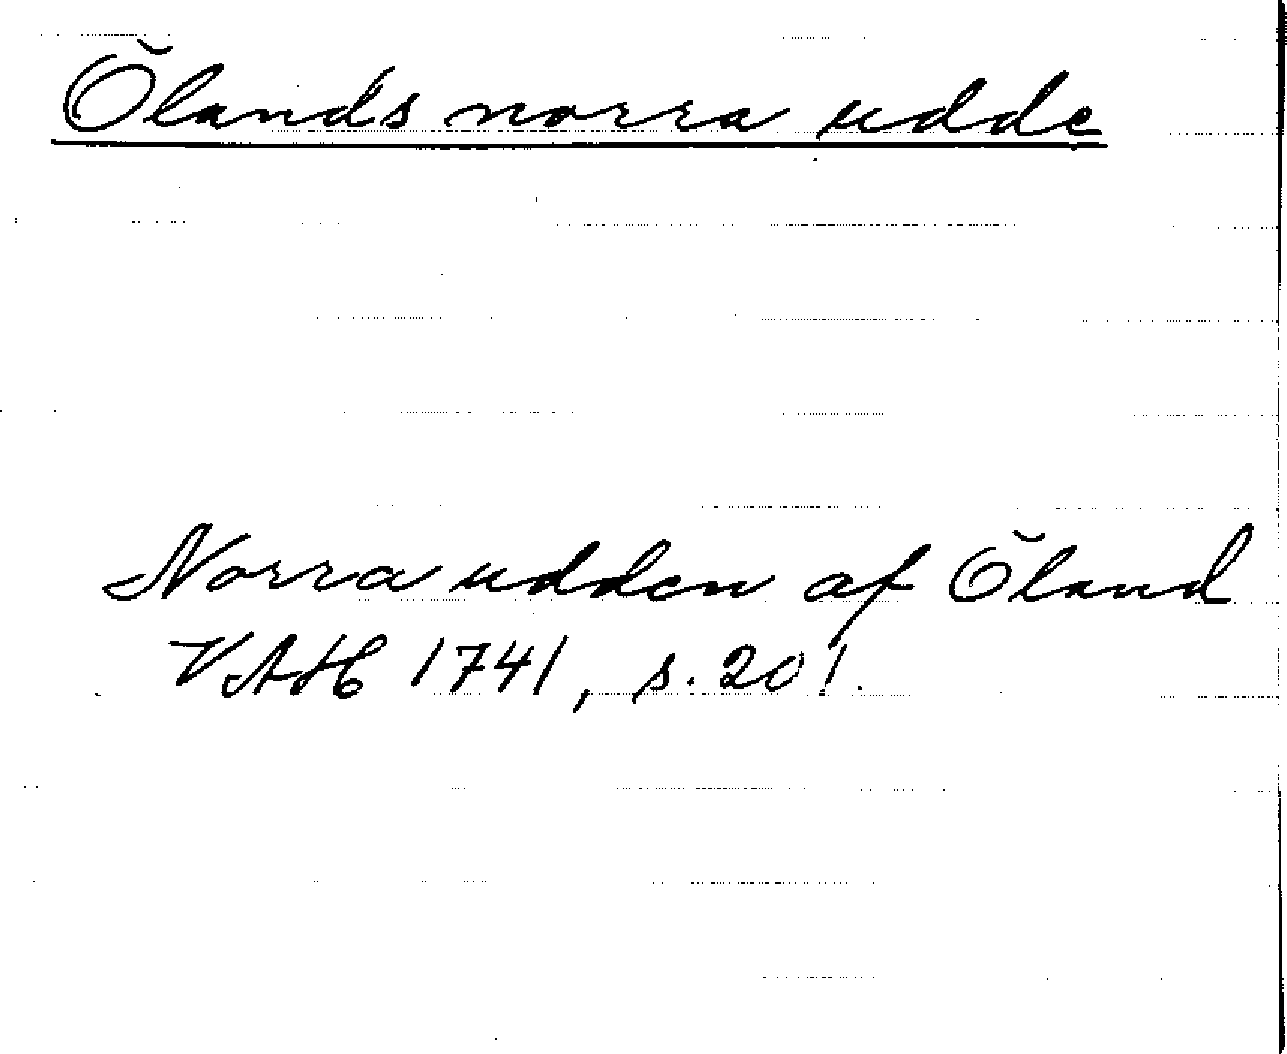 Ölands norra udde
Norra udden af Öland
VAH 1741, s. 201.